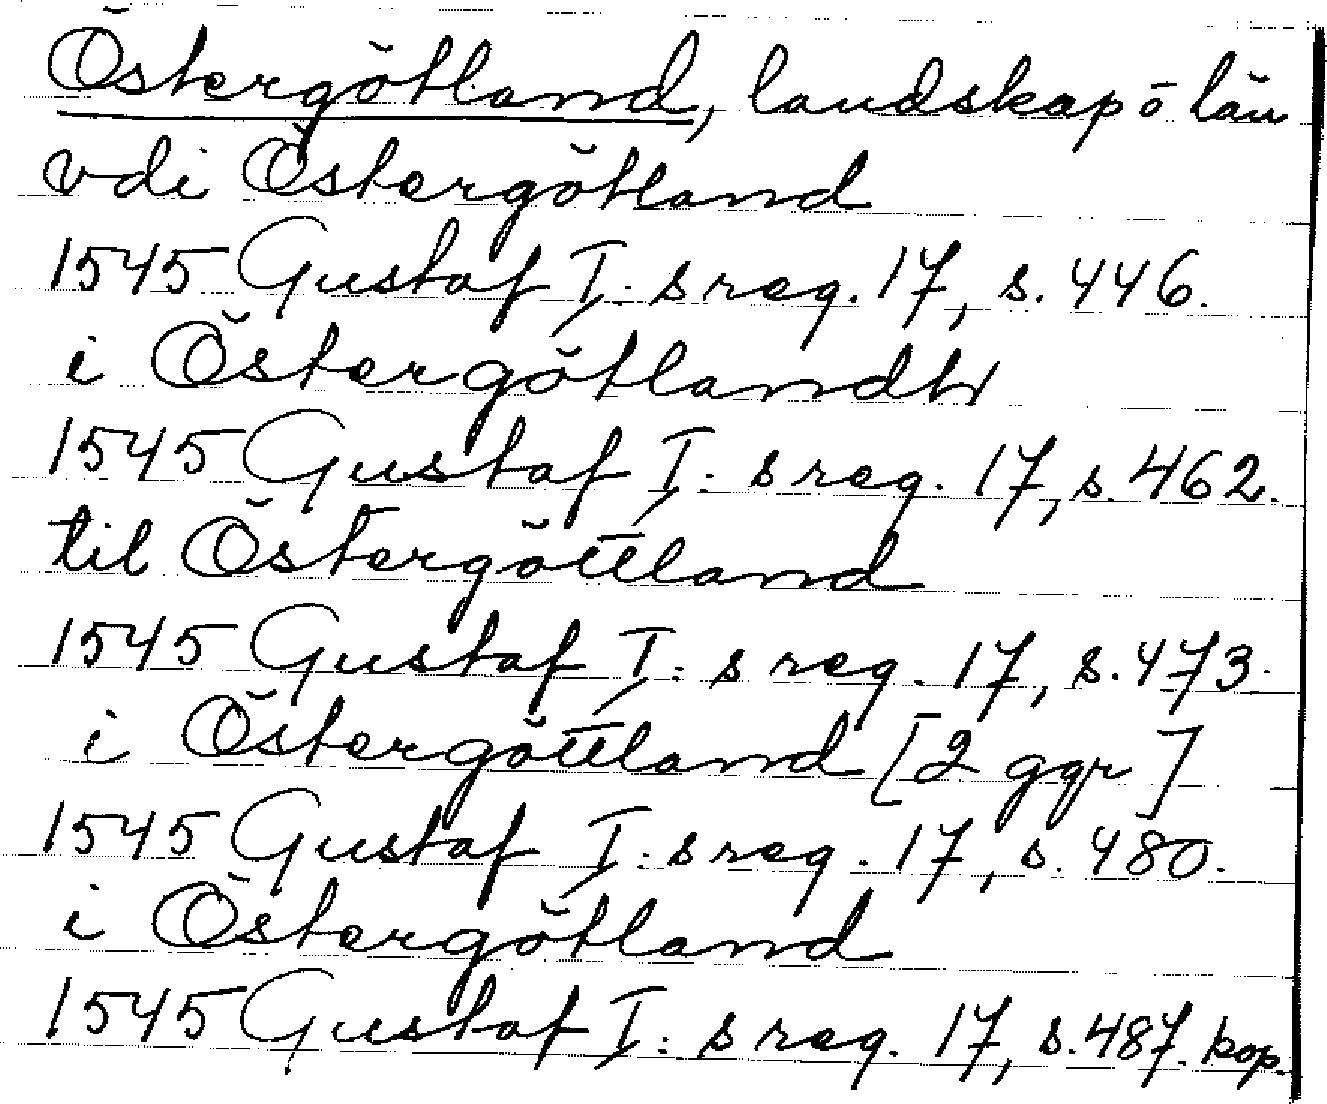 Östergötland, landskap o län
vdi Östergötland
1545 Gustaf I:s reg. 17, s. 446.
i Östergötlandh
1545 Gustaf I:s reg. 17, s. 462.
til Östergöttland
1545 Gustaf I:s reg. 17, s. 473.
i Östergöttland [2 ggr]
1545 Gustaf I:s reg. 17, s. 480.
i Östergötland
1545 Gustaf I:s reg. 17, s. 487. kop.